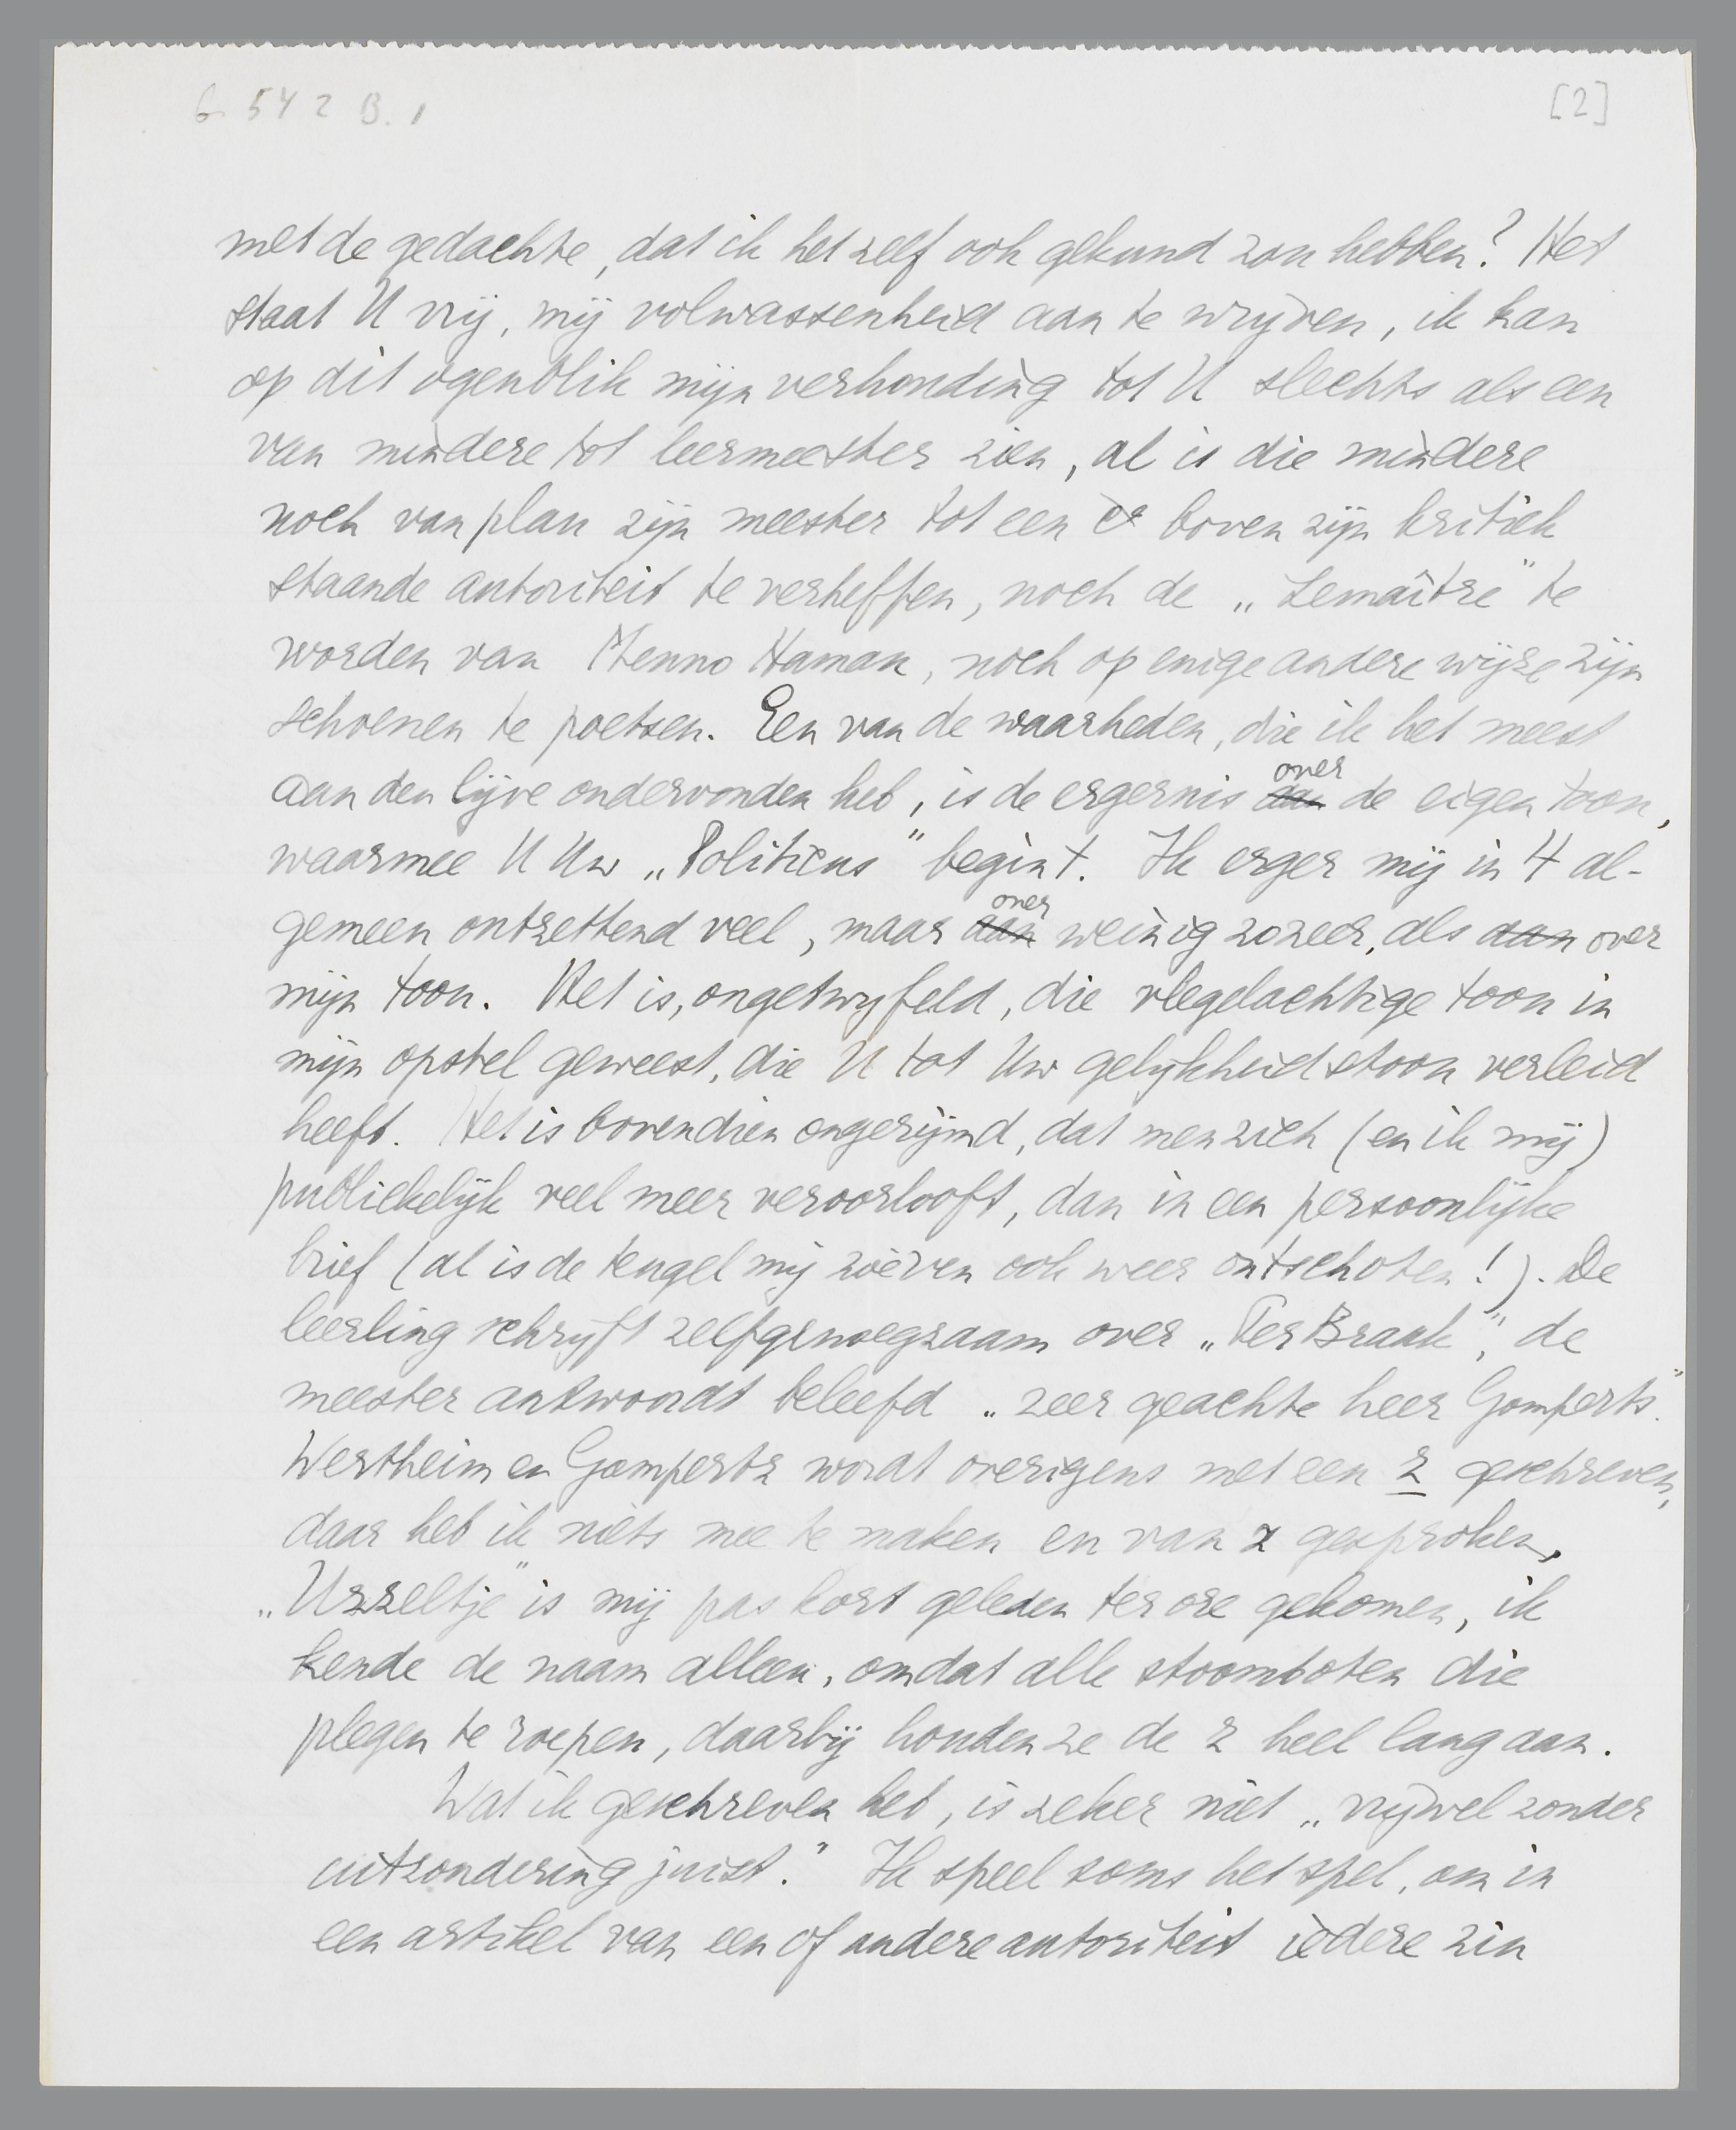 G 542 B. 1
[2]
met de gedachte, dat ik het zelf ook gekund zou hebben? Het
staat U vrij, mij volwassenheid aan te wrijven, ik kan
op dit ogenblik mijn verhouding tot U slechts als een
van mindere tot leermeester zien, al is die mindere
noch van plan zijn meester tot een er boven zijn kritiek
staande autoriteit te verheffen, noch de „Lemaître" te
worden van Menno Haman, noch op enige andere wijze zijn
schoenen te poetsen. Een van de waarheden, die ik het meest
over
aan den lijve ondervonden heb, is de ergernis aan de eigen toon,
waarmee U Uw „Politicus" begint. Ik erger mij in 't al-
over
gemeen ontzettend veel, maar aan weinig zozeer, als aan over
mijn toon. Het is, ongetwyfeld, die vlegelachtige toon in
mijn opstel geweest, die U tot Uw gelijkheidstoon verleid
heeft. Het is bovendien ongerijmd, dat men zich (en ik mij)
publiekelijk veel meer veroorlooft, dan in een persoonlijke
brief (al is de teugel mij zoëven ook weer ontschoten!). De
leerling schrijft zelfgenoegzaam over „Ter Braak", de
meester antwoordt beleefd „zeer geachte heer Gomperts".
Wertheim en Gompertz wordt overigens met een z geschreven,
daar heb ik niets mee te maken en van z gesproken,
„Uzzeltje" is mij pas kort geleden ter ore gekomen, ik
kende de naam alleen, omdat alle stoomboten die
plegen te roepen, daarbij houden ze de z heel lang aan.
Wat ik geschreven heb, is zeker niet „vrijwel zonder
uitzondering juist." Ik speel soms het spel, om in
een artikel van een of andere autoriteit iedere zin